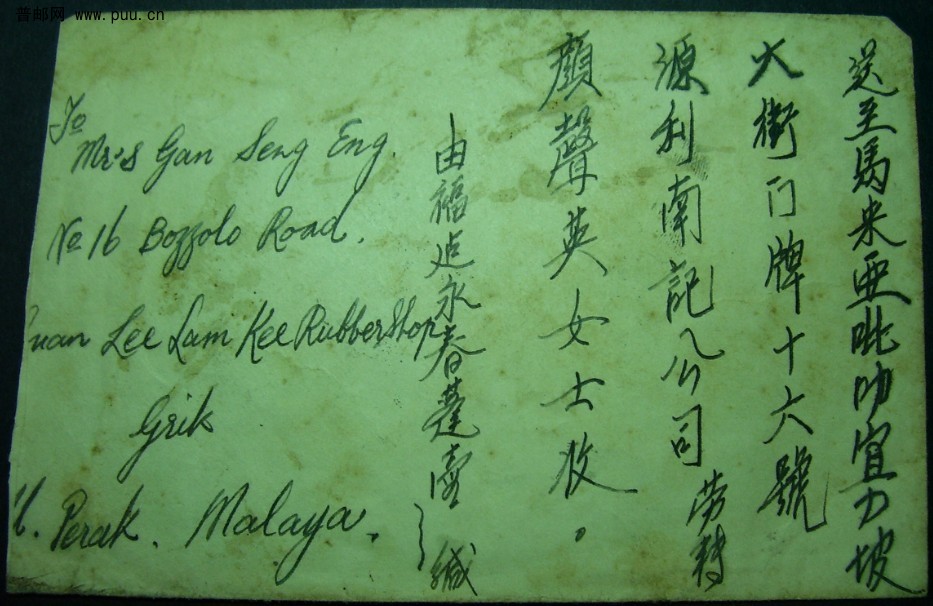 普邮网 www.puu.cn
送至馬来亜吡叻宜力坡
大街门牌十六號
源利南記公司
劳转
顔聲英女士收。
由福建永春蓬壶
缄
To
Mr's Gan Seng Eng.
No 16 Bozzolo Road.
uan Lee Lam Kee Rubber Shop
Grik
U. Perak. Malaya.